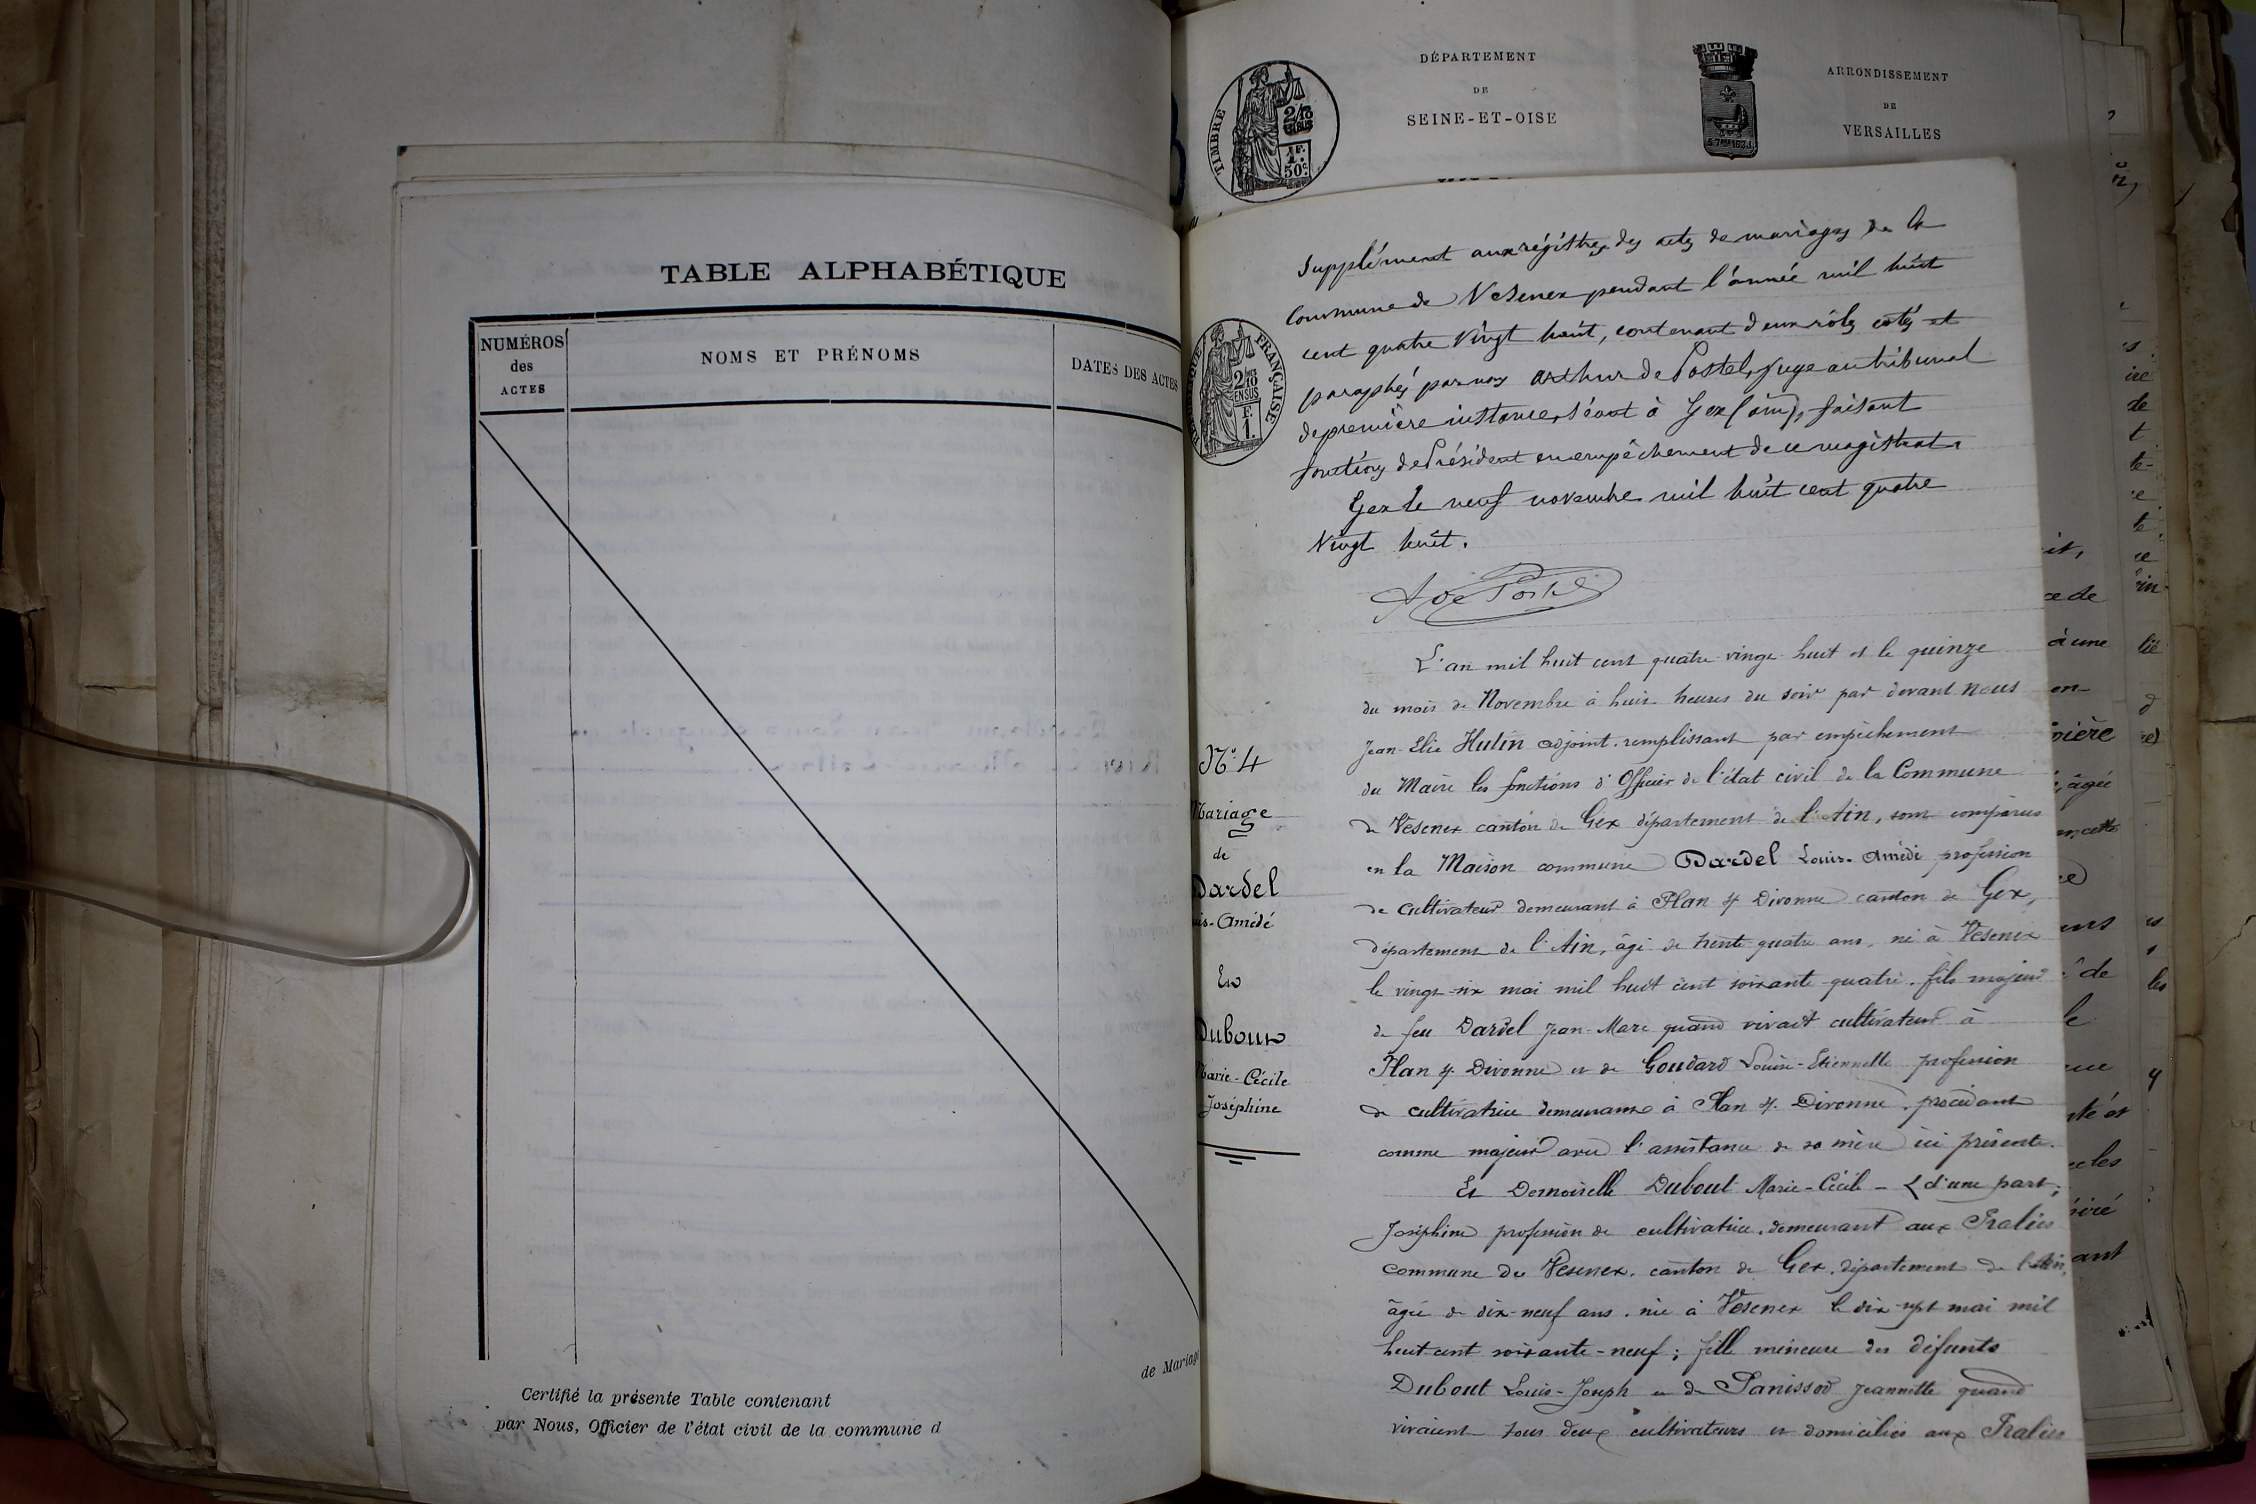 TABLE ALPHABÉTIQUE
NUMÉROS
des
ACTES
NOMS ET PRÉNOMS
DATES DES ACTES
de Mariage
Certifié la présente Table contenant
par Nous, Officier de l'état civil de la commune d
DÉPARTEMENT
DE
SEINE-ET-OISE
ARRONDISSEMENT
DE
VERSAILLES
TIMBRE
2/10
EN SUS
1 F.
50 c.
Supplément aux régistres des actes de mariages de la
Commune de Vesenex pendant l'année mil huit
cent quatre vingt huit, contenant deux rôles cotés et
paraphés par nous Arthur de Postel, juge au tribunal
de première instance, séant à Gex (ain), faisant
fonctions de Président en empêchement de ce magistrat.
Gex le neuf novembre mil huit cent quatre
vingt huit.
A de Postel
FRANÇAISE
2/10
EN SUS
F.
1.
L'an mil huit cent quatre vingt huit et le quinze
du mois de Novembre à huit heures du soir par devant nous
Jean-Elie Hutin adjoint remplissant par empêchement
du Maire les fonctions d'Officier de l'état civil de la Commune
de Vesenex canton de Gex département de l'Ain, sont comparus
en la Maison commune Dardel Louis-Amédé profession
de cultivateur demeurant à Plan s/ Divonne canton de Gex,
département de l'Ain, âgé de trente quatre ans, né à Vesenex
le vingt-six mai mil huit cent soixante-quatre. fils majeur
de feu Dardel Jean-Marc quand vivait cultivateur à
Plan s/ Divonne et de Goudard Louise-Etiennette profession
de cultivatrice demeurant à Plan s/ Divonne, procédant
comme majeur avec l'assistance de sa mère ici présente.
Et Demoiselle Dubout Marie-Cécile - d'une part;
Joséphine profession de cultivatrice, demeurant aux Pralies
commune de Vesenex, canton de Gex, département de l'Ain,
âgée de dix-neuf ans, née à Vesenex le dix-sept mai mil
huit cent soixante-neuf; fille mineure des défunts
Dubout Louis-Joseph et de Panissod Jeannette quand
vivaient tous deux cultivateurs et domiciliés aux Pralies
N° 4
Mariage
de
Dardel
is-Amédé
Et
Dubout
Marie-Cécile
Joséphine